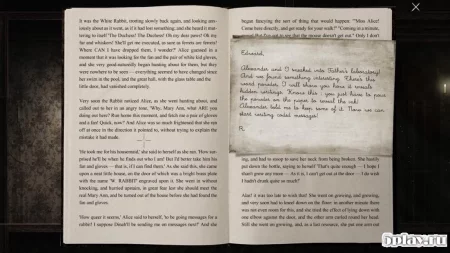 It was the White Rabbit, trotting slowly back again, and looking anx-
iously about as it went, as if it had lost something; and she heard it mut-
tering to itself 'The Duchess! The Duchess! Oh my dear paws! Oh my
fur and whiskers! She'll get me executed, as sure as ferrets are ferrets!
Where CAN I have dropped them, I wonder?' Alice guessed in a
moment that it was looking for the fan and the pair of white kid gloves,
and she very good-naturedly began hunting about for them, but they
were nowhere to be seen — everything seemed to have changed since
her swim in the pool, and the great hall, with the glass table and the
little door, had vanished completely.
Very soon the Rabbit noticed Alice, as she went hunting about, and
called out to her in an angry tone, 'Why, Mary Ann, what ARE you
doing out here? Run home this moment, and fetch me a pair of gloves
and a fan! Quick, now!' And Alice was so much frightened that she ran
off at once in the direction it pointed to, without trying to explain the
mistake it had made.
'He took me for his housemaid,' she said to herself as she ran. 'How sur-
prised he'll be when he finds out who I am! But I'd better take him his
fan and gloves — that is, if I can find them.' As she said this, she came
upon a neat little house, on the door of which was a bright brass plate
with the name 'W. RABBIT' engraved upon it. She went in without
knocking, and hurried upstairs, in great fear lest she should meet the
real Mary Ann, and be turned out of the house before she had found the
fan and gloves.
'How queer it seems,' Alice said to herself, 'to be going messages for a
rabbit! I suppose Dinah'll be sending me on messages next!' And she
began fancying the sort of thing that would happen: '"Miss Alice!
Come here directly, and get ready for your walk!" "Coming in a minute,
Edward,
Alexander and I sneaked into Father's laboratory!
And we found something interesting. There's this
weird powder. I will show you how it reveals
hidden writings. Know this: you just have to pour
the powder on the paper to reveal the ink!
Alexander told me to keep some of it. Now we can
start writing coded messages!
R.
ing, and had to stoop to save her neck from being broken. She hastily
put down the bottle, saying to herself 'That's quite enough — I hope I
shan't grow any more — As it is, I can't get out at the door — I do wish
I hadn't drunk quite so much!'
Alas! it was too late to wish that! She went on growing, and growing,
and very soon had to kneel down on the floor: in another minute there
was not even room for this, and she tried the effect of lying down with
one elbow against the door, and the other arm curled round her head.
Still she went on growing, and, as a last resource, she put one arm out
oplay.ru